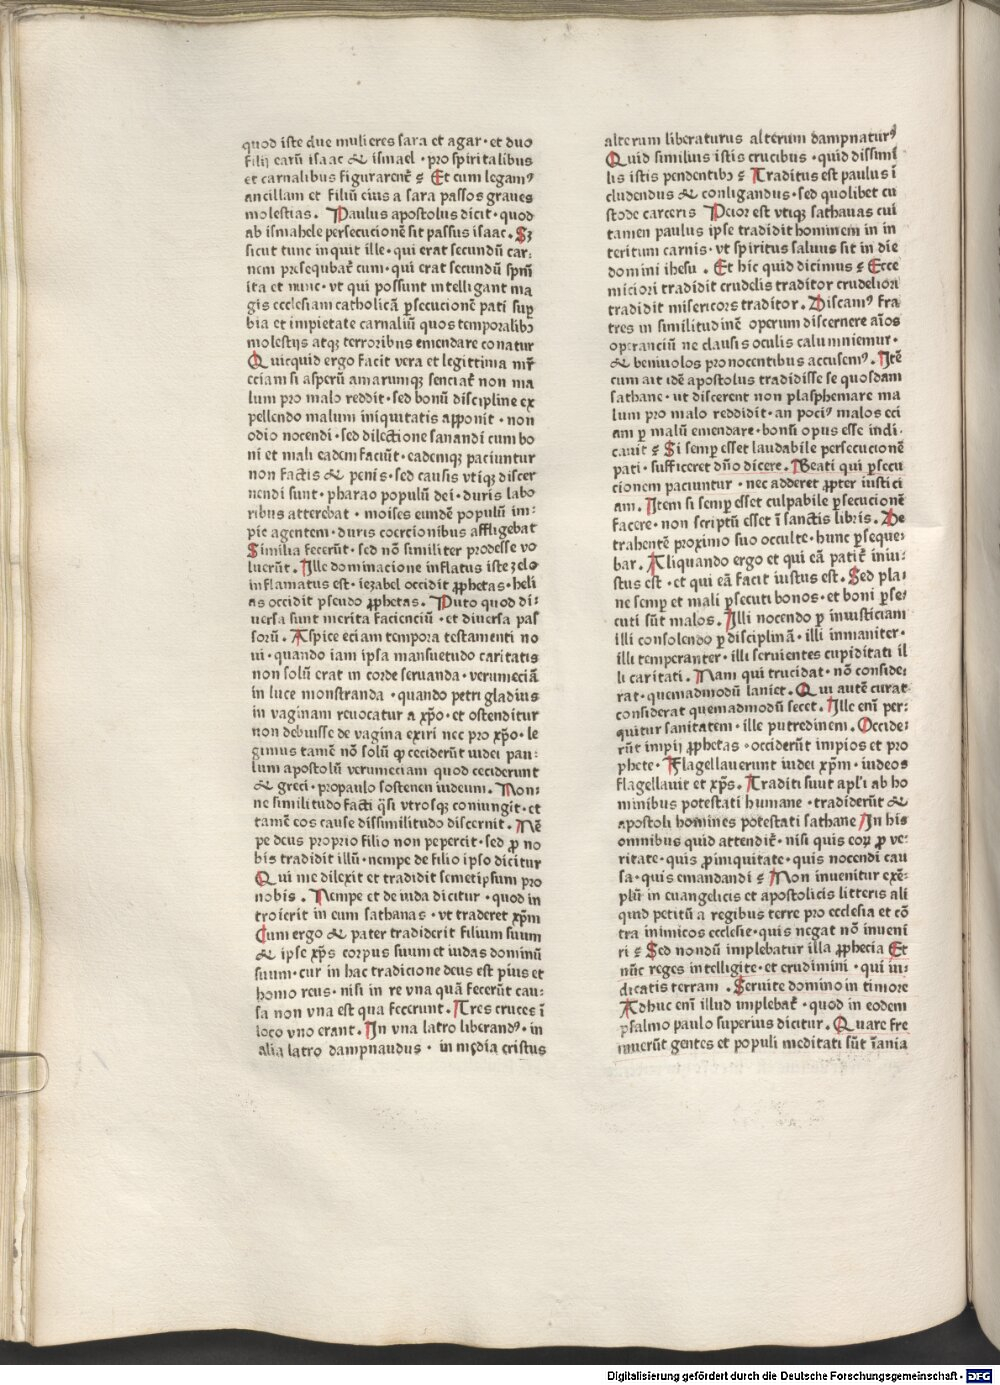 quod iste due mulieres sara et agar · et duo
filij earū isaac & ismael · pro spiritalibus
et carnalibus figurarent̄ ⁊ Et cum legamꝰ
ancillam et filiū eius a sara passos graues
molestias . Paulus apostolus dicit · quod
ab ismahele persecucionē sit passus isaac . Sꝫ
sicut tunc inquit ille · qui erat secundū car⸗
nem prosequbat̄ eum · qui erat secundū spm̄
ita et nunc · vt qui possunt intelligant ma
gis ecclesiam catholicā ꝑsecucionē pati suꝑ
bia et impietate carnaliū quos temporalibꝫ
molestijs atqꝫ terroribus emendare conatur
Quicquid ergo facit vera et legittima mr̄
eciam si asperū amarumqꝫ senciat̄ non ma
lum pro malo reddit · sed bonū discipline ex
pellendo malum iniquitatis apponit · non
odio nocendi · sed dilectione sanandi cum bo
ni et mali eadem faciūt · eademqꝫ paciuntur
non factis & penis · sed causis vtiqꝫ discer
nendi sunt · pharao populū dei · duris labo
ribus atterebat · moises eundē populū im⸗
pie agentem · duris coercionibus affligebat
Similia fecerūt · sed nō similiter prodesse vo
luerūt . Ille dominacione inflatus iste zelo
inflamatus est · iezabel occidit ꝓphetas · heli
as occidit pseudo ꝓphetas . Puto quod di⸗
uersa sunt merita faciencíū · et diuersa pas
sorū . Aspice eciam tempora testamenti no
ui · quando iam ipsa mansuetudo caritatis
non solū erat in corde seruanda · verumeciā
in luce monstranda · quando petri gladius
in vaginam reuocatur a xp̄o · et ostenditur
non debuisse de vagina exiri nec pro xp̄o · le
gimus tamē nō solū ꝙ ceciderūt iudei pau⸗
lum apostolū verumeciam quod ceciderunt
& greci · propaulo sostenen iudeum . Non⸗
ne similitudo facti q̄si vtrosqꝫ coniungit · et
tamē eos cause dissimilitudo discernit . Nē
pe deus proprio filio non pepercit · sed ꝓ no
bis tradidit illū · nempe de filio ipso dicitur
Qui me dilexit et tradidit semetipsum pro
nobis . Nempe et de iuda dicitur · quod in
troierit in eum sathanas · vt traderet xp̄m
Cum ergo & pater tradiderit filium suum
& ipse xp̄s corpus suum et iudas dominū
suum · cur in hac tradicione deus est pius et
homo reus · nisi in re vna quā fecerūt cau⸗
sa non vna est qua fecerunt . Tres cruces ī
loco vno erant . In vna latro liberandꝰ · in
alia latro dampnaudus · in media cristus
alterum liberaturus alterum dampnaturꝰ
Quid similius istis crucibus · quid dissimi
lis istis pendentibꝫ ⁊ Traditus est paulus ī
cludendus & conligandus · sed quolibet cu
stode carceris Peior est vtiqꝫ sathauas cui
tamen paulus ipse tradidit hominem in in
teritum carnis · vt spiritus saluus sit in die
domini ihesu . Et hic quid dicimus ⁊ Ecce
miciori tradidit crudelis traditor crudeliori
tradidit misericors traditor . Discamꝰ fra
tres in similitudinē operum discernere aīos
operanciū ne clausis oculis calumniemur ·
& beniuolos pro nocentibus accusemꝰ . Itē
cum ait idē apostolus tradidisse se quosdam
sathane · ut discerent non plasphemare ma
lum pro malo reddidit · an pociꝰ malos eci
am ꝑ malū emendare · bonū opus esse indi⸗
cauit ⁊ Si semꝑ esset laudabile persecucionē
pati · sufficeret dn̄o dicere . Beati qui ꝑsecu
cionem paciuntur · nec adderet ꝓpter iustici
am . Item si semꝑ esset culpabile ꝑsecucionē
facere · non scriptū esset ī sanctis libris . De
trahentē proximo suo occulte · hunc ꝑseque⸗
bar . Aliquando ergo et qui eā patit̄ iniu⸗
stus est · et qui eā facit iustus est . Sed pla⸗
ne semꝑ et mali ꝑsecuti bonos · et boni ꝑse⸗
cuti sūt malos . Illi nocendo ꝑ inuisticiam
illi consolendo ꝑ disciplinā · illi inmaniter ·
illi temperanter · illi seruientes cupiditati il
li caritati . Nam qui trucidat · nō conside⸗
rat · quemadmodū laniet . Qui autē curat
considerat quemadmodū secet . Ille enī per⸗
quitur sanitatem · ille putredinem . Occide⸗
rūt impij ꝓphetas · occiderūt impios et pro
phete . Flagellauerunt iudei xp̄m · iudeos
flagellauit et xp̄s . Traditi suut apl'i ab ho
minibus potestati humane · tradiderūt &
apostoli homines potestati sathane In his
omnibus quid attendit̄ · nisi quis eoꝝ ꝓ ve⸗
ritate · quis ꝓ iniquitate · quis nocendi cau
sa · quis emandandi ⁊ Non inuenitur exē⸗
plū in euangelicis et apostolicis litteris ali
quid petitū a regibus terre pro ecclesia et cō
tra inimicos ecclesie · quis negat nō inueni
ri ⁊ Sed nondū implebatur illa ꝓphecia Et
nūc reges intelligite · et erudimini · qui iu⸗
dicatis terram . Seruite domino in timore
Adhuc enī illud implebat̄ · quod in eodem
psalmo paulo superius dicitur . Quare fre
muerūt gentes et populi meditati sūt īania
Digitalisierung gefördert durch die Deutsche Forschungsgemeinschaft - DFG